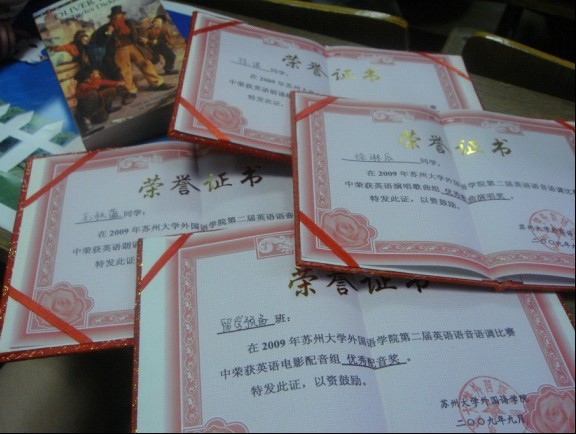 OLIVER
荣誉证书
同学:
在2009年苏州大学外国
中荣获英语朗诵
特发此证,
荣誉证书
同学:
在2009年苏州大学外国语学院第二届英语语音语调比
中荣获英语演唱歌曲组 优秀 曲演唱奖。
特发此证,以资鼓励。
苏州大学外国语学
二〇〇九年九
荣誉证书
同学:
在2009年苏州大学外国语学院第二届英语语
中荣获英语朗诵
特发此证,
荣誉证书
班:
在2009年苏州大学外国语学院第二届英语语音语调比赛
中荣获英语电影配音组 优秀配音奖。
特发此证,以资鼓励。
苏州大学外国语学院
二〇〇九年九月